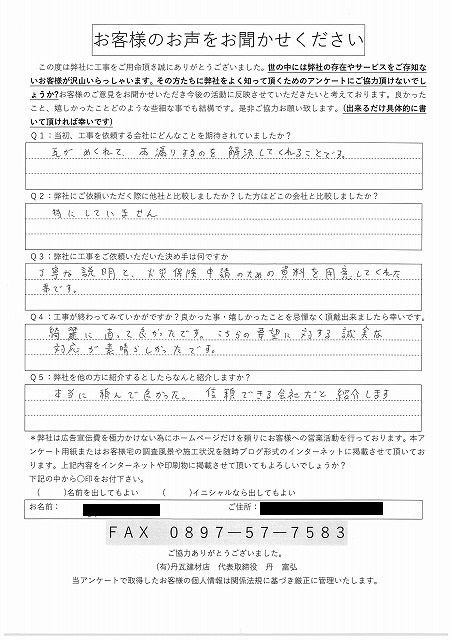 お客様のお声をお聞かせください
この度は弊社に工事をご用命頂き誠にありがとうございました。世の中には弊社の存在やサービスをご存知な
いお客様が沢山いらっしゃいます。その方たちに弊社をよく知って頂くためのアンケートにご協力頂けないでし
ょうか?お客様のご意見をお聞かせいただき今後の活動に反映させていただきたいと考えております。良かった
こと、嬉しかったことどのような些細な事でも結構です。是非ご協力お願い致します。(出来るだけ具体的に書
いて頂ければ幸いです)
Q1:当初、工事を依頼する会社にどんなことを期待されていましたか?
瓦が めくれて、雨漏りするのを 解決してくれることです。
Q2:弊社にご依頼いただく際に他社と比較しましたか?した方はどこの会社と比較しましたか?
特にしていません
Q3:弊社に工事をご依頼いただいた決め手は何ですか
丁寧な説明と、火災保険申請のための資料を用意してくれた
事です。
Q4:工事が終わってみていかがですか?良かった事・嬉しかったことを忌憚なく頂戴出来ましたら幸いです。
綺麗に直って良かったです。こちらの要望に対する誠実な
対応が素晴らしかったです。
Q5:弊社を他の方に紹介するとしたらなんと紹介しますか?
本当に頼んで良かった。信頼できる会社だと紹介します
*弊社は広告宣伝費を極力かけない為にホームページだけを頼りにお客様への営業活動を行っております。本ア
ンケート用紙またはお客様宅の調査風景や施工状況を随時ブログ形式のインターネットに掲載させて頂いてお
ります。上記内容をインターネットや印刷物に掲載させて頂いてもよろしいでしょうか?
下記の中から〇印をお付下さい。
( )名前を出してもよい ( )イニシャルなら出してもよい
お名前: ご住所:
FAX 0897-57-7583
ご協力ありがとうございました。
(有)丹瓦建材店 代表取締役 丹 富弘
当アンケートで取得したお客様の個人情報は関係法規に基づき厳正に管理いたします。